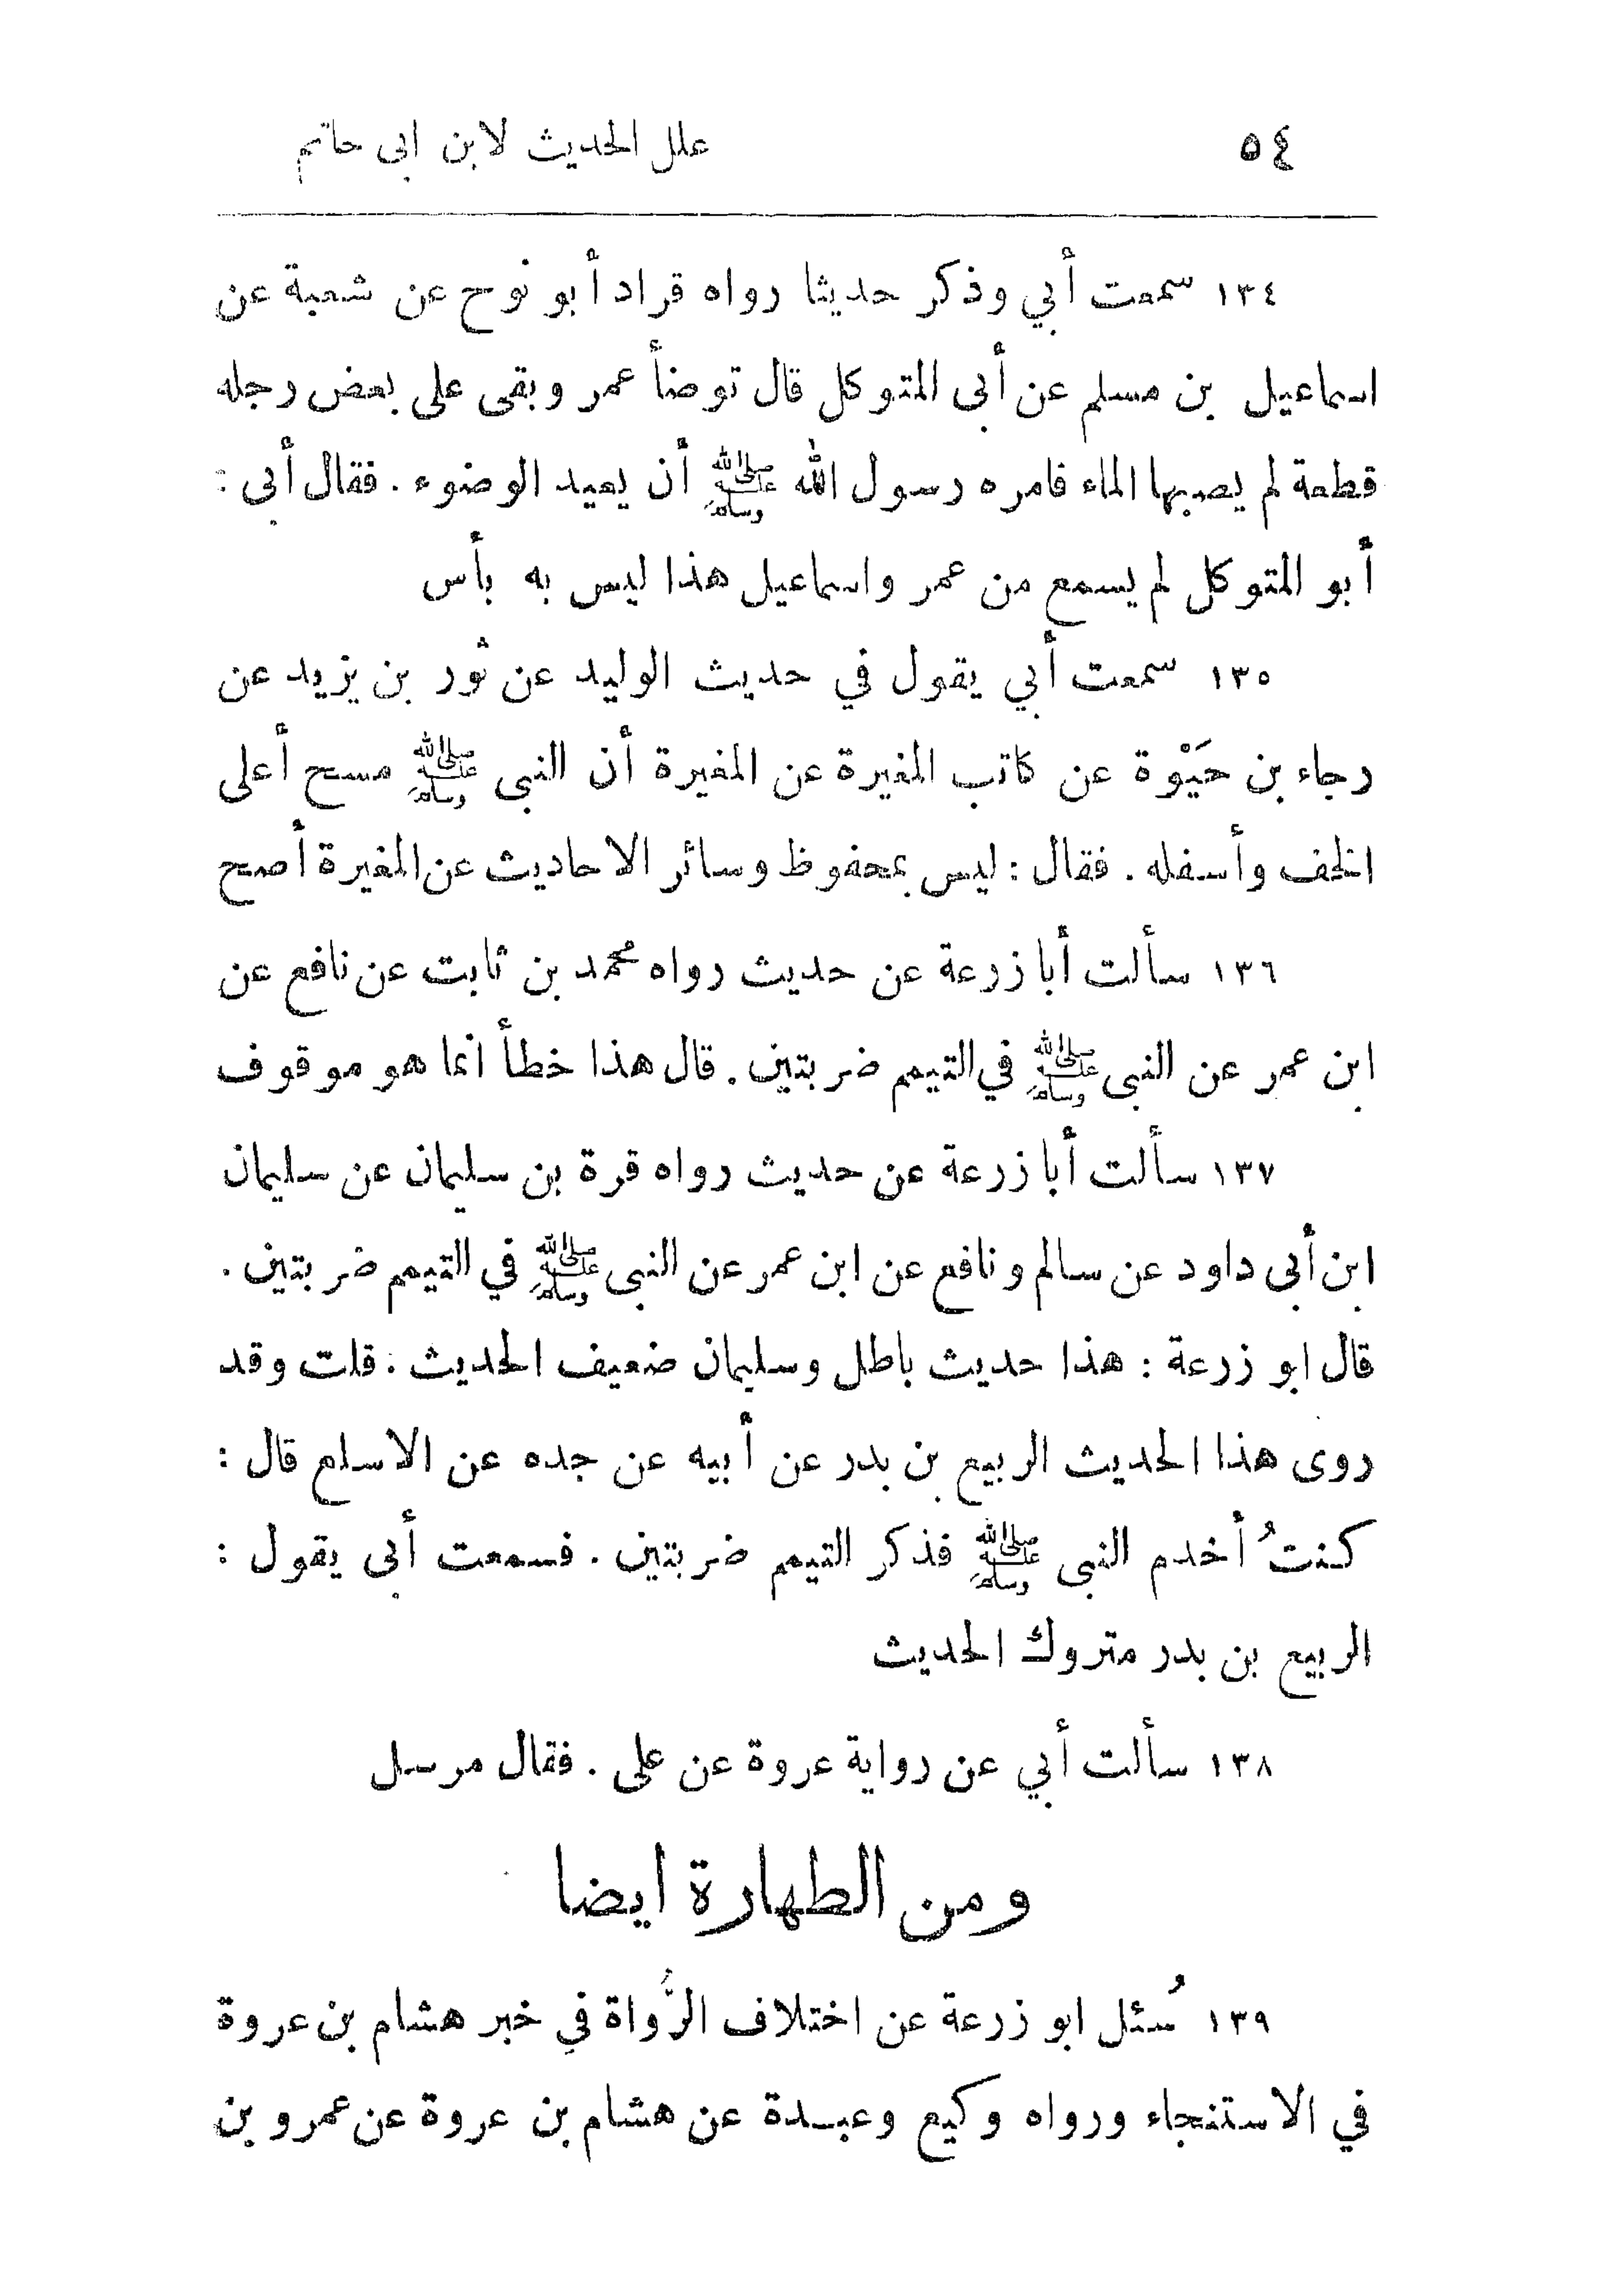 ٥٤ علل الحديث لابن ابى حاتم
١٣٤ سمعت أبي وذكر حديثا رواه قراد أبو نوح عن شعبة عن
اسماعيل بن مسلم عن أبى المتوكل قال توضأ عمر وبقى على بعض رجله
قطعة لم يصبها الماء فامره رسول الله ﷺ أن يعيد الوضوء . فقال أبى :
أبو المتوكل لم يسمع من عمر واسماعيل هذا ليس به بأس
١٣٥ سمعت أبي يقول في حديث الوليد عن ثور بن يزيد عن
رجاء بن حَيْوة عن كاتب المغيرة عن المغيرة أن النبى ﷺ مسح أعلى
الخف وأسفله . فقال : ليس بمحفوظ وسائر الاحاديث عن المغيرة أصح
١٣٦ سألت أبا زرعة عن حديث رواه محمد بن ثابت عن نافع عن
ابن عمر عن النبى ﷺ في التيمم ضربتين . قال هذا خطأ انما هو موقوف
١٣٧ سألت أبا زرعة عن حديث رواه قرة بن سليمان عن سليمان
ابن أبى داود عن سالم ونافع عن ابن عمر عن النبى ﷺ في التيمم ضربتين .
قال ابو زرعة : هذا حديث باطل وسليمان ضعيف الحديث . قلت وقد
روى هذا الحديث الربيع بن بدر عن أبيه عن جده عن الاسلع قال :
كنتُ أخدم النبى ﷺ فذكر التيمم ضربتين . فسمعت أبى يقول :
الربيع بن بدر متروك الحديث
١٣٨ سألت أبي عن رواية عروة عن على . فقال مرسل
ومن الطهارة ايضا
١٣٩ سُئل ابو زرعة عن اختلاف الرُّواة في خبر هشام بن عروة
في الاستنجاء ورواه وكيع وعبدة عن هشام بن عروة عن عمرو بن